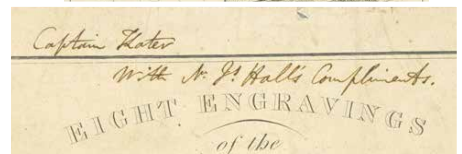 Captain Kater
With N. Js. Hall's Compliments.
EIGHT ENGRAVINGS
of the